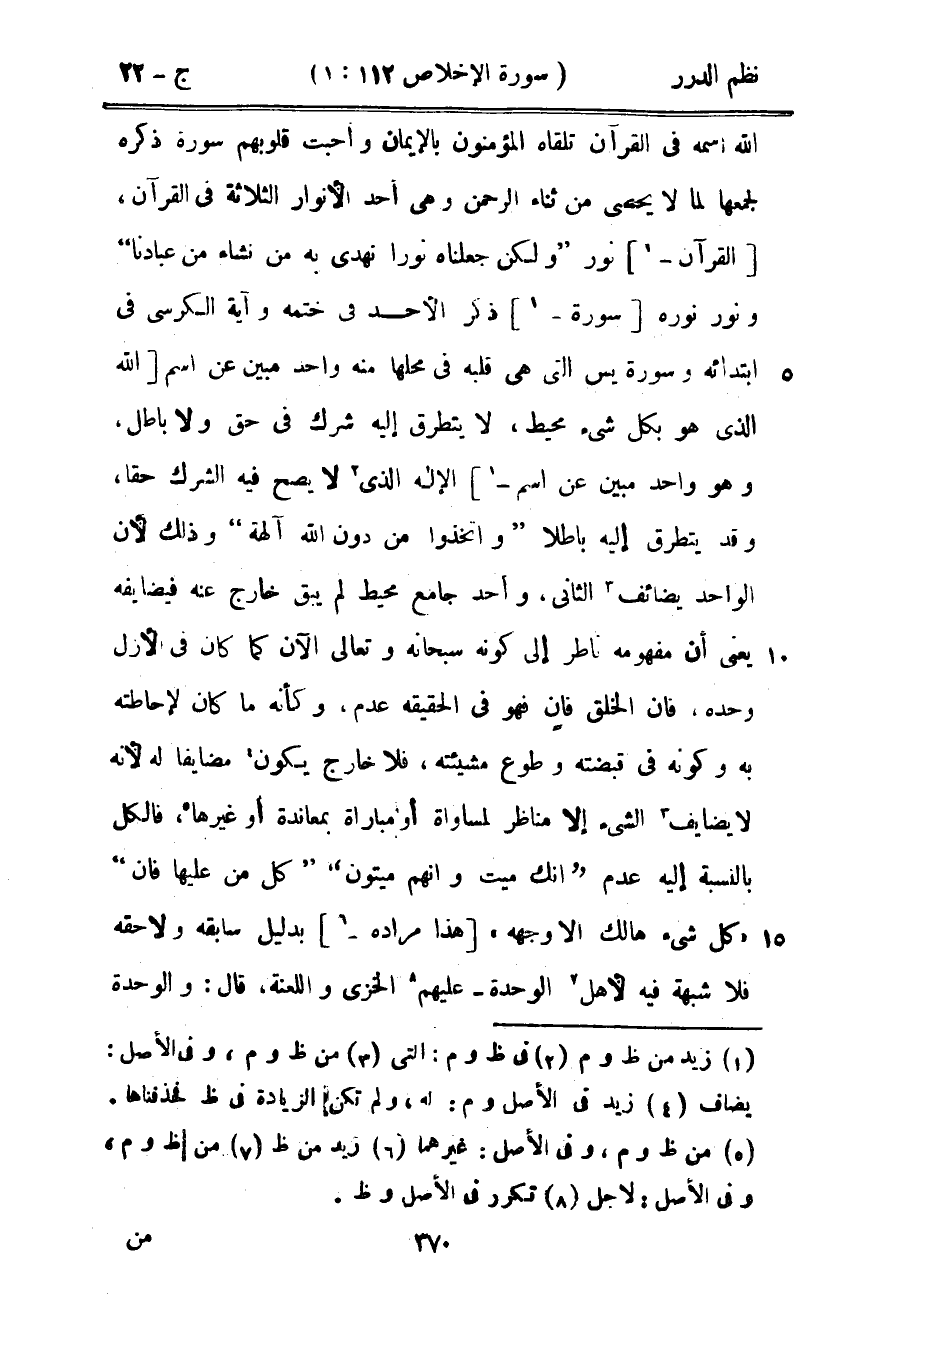 نظم الدرر ( سورة الإخلاص ١١٢ : ١ ) ج - ٢٢
الله اسمه فى القرآن تلقاه المؤمنون بالإيمان و أحبت قلوبهم سورة ذكره
لجمعها لما لا يحصى من ثناء الرحمن و هى أحد الأنوار الثلاثة فى القرآن ،
[ القرآن - ١ ] نور ”و لـكن جعلناه نورا نهدى به من نشاء من عبادنا“
و نور نوره [ سورة - ١ ] ذكر الأحـــد فى ختمه و آية الـكرسى فى
ابتدائه و سورة يس التى هى قلبه فى محلها منه واحد مبين عن اسم [ الله ٥
الذى هو بكل شىء محيط ، لا يتطرق إليه شرك فى حق و لا باطل ،
و هو واحد مبين عن اسم - ١ ] الإله الذى٢ لا يصح فيه الشرك حقا ،
و قد يتطرق إليه باطلا ” و اتخذوا من دون الله آلهة “ و ذلك لأن
الواحد يضائف٣ الثانى ، و أحد جامع محيط لم يبق خارج عنه فيضايفه
يعنى أن مفهومه ناظر إلى كونه سبحانه و تعالى الآن كما كان فى الأزل ١٠
وحده ، فان الخلق فانٍ فهو فى الحقيقه عدم ، و كأنه ما كان لإحاطته
به و كونه فى قبضته و طوع مشيئته ، فلا خارج يـكون٤ مضايفا له لأنه
لا يضايف٣ الشىء إلا مناظر لمساواة أو مباراة بمعاندة أو غيرها٥، فالكل
بالنسبة إليه عدم ”انك ميت و انهم ميتون“ ” كل من عليها فان “
”كل شىء هالك الا وجهه“ [ هذا مراده - ٦ ] بدليل سابقه و لاحقه ١٥
فلا شبهة فيه لأهل٧ الوحدة - عليهم٨ الخزى و اللعنة ، قال : و الوحدة
(١) زيد من ظ و م (٢) فى ظ و م : التى (٣) من ظ و م ، و فى الأصل :
يضاف (٤) زيد فى الأصل و م : له ، و لم تكن الزيادة فى ظ فحذفناها .
(٥) من ظ و م ، و فى الأصل : غيرهما (٦) زيد من ظ (٧) من ظ و م ،
و فى الأصل : لاجل (٨) تـكرر فى الأصل و ظ .
٣٧٠ من